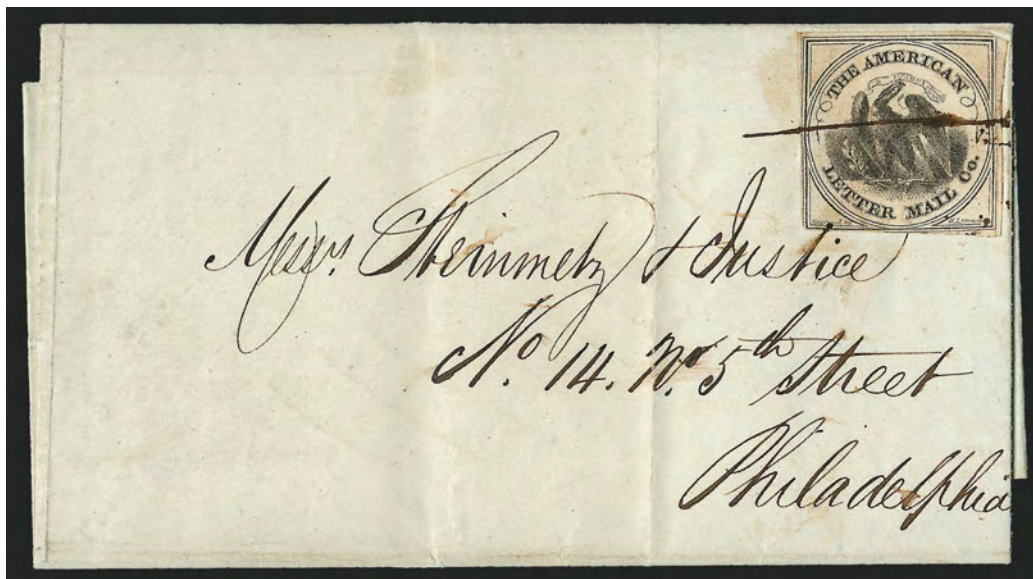 THE AMERICAN
LETTER MAIL Co.
Messrs. Steinmetz & Justice
No. 14. No. 5th Street
Philadelphia